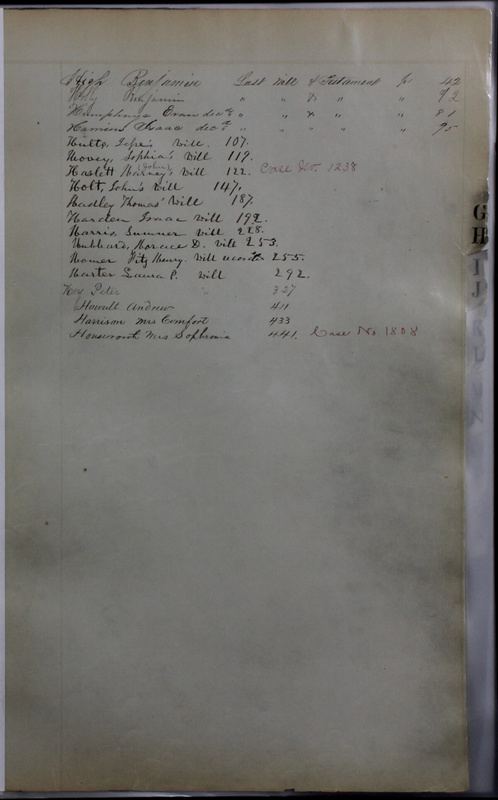 High Benjamin Last Will & Testament pr 42
Benjamin " " & " " 92
Humphreys Evan decd " " & " " 81
Isaac decd " " " " " 95
Hults, will. 107.
Hovey, Sophia's will 119.
Haslett (John) Harvey's will 122. Case No. 1238
Holt, John's will 147.
Hadley Thomas' will 187.
Harden Isaac will 192.
Harris, Sumner will 228.
Hubbard, Horace D. will 253.
Homer Fitz Henry. will 255.
Harter Laura P. will 292.
Hoy Peter " 327
Howell Andrew 411
Harrison Mrs Comfort 433
Housworth Mrs Sophronia 441. Case No 1808
G
H
I
J